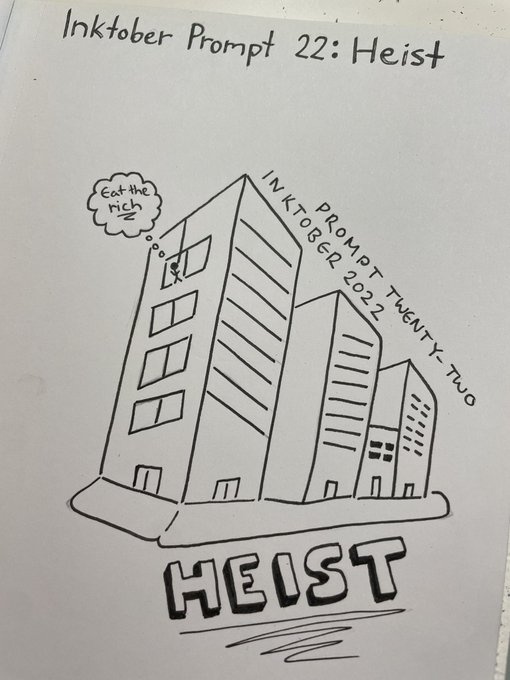 Inktober Prompt 22: Heist
Eat the
rich
PROMPT TWENTY-TWO
INKTOBER 2022
HEIST